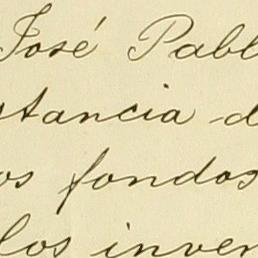 José Pabl
stancia d
os fondos
los inver